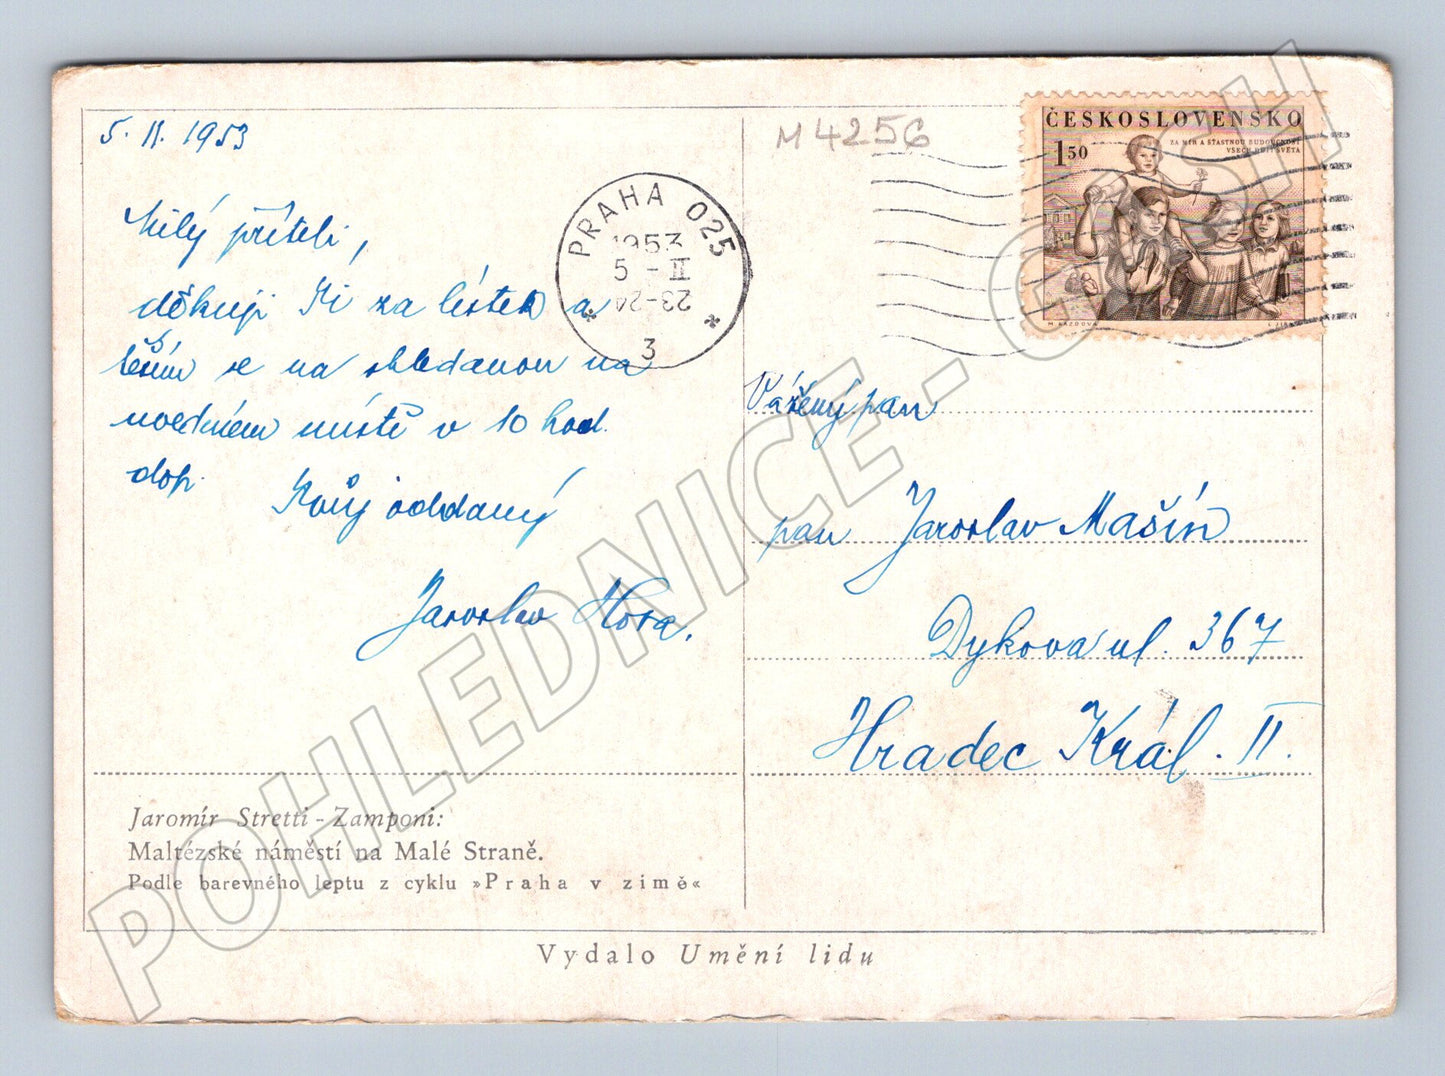 5. II. 1953
Milý příteli,
děkuji Ti za lístek a
těším se na shledanou na
uvedeném místě v 10 hod.
dop.
Tvůj oddaný
Jaroslav Hora.
Jaromír Stretti-Zamponi:
Maltézské náměstí na Malé Straně.
Podle barevného leptu z cyklu »Praha v zimě«
Vydalo Umění lidu
M 4256
PRAHA 025
1953
5 - II
23-24
* 3 *
ČESKOSLOVENSKO
1 50
ZA MÍR A ŠŤASTNOU BUDOUCNOST
VŠECH DĚTÍ SVĚTA
Vážený pan
pan Jaroslav Mašín
Dykova ul. 367
Hradec Král. II.
POHLEDNICE-CASH